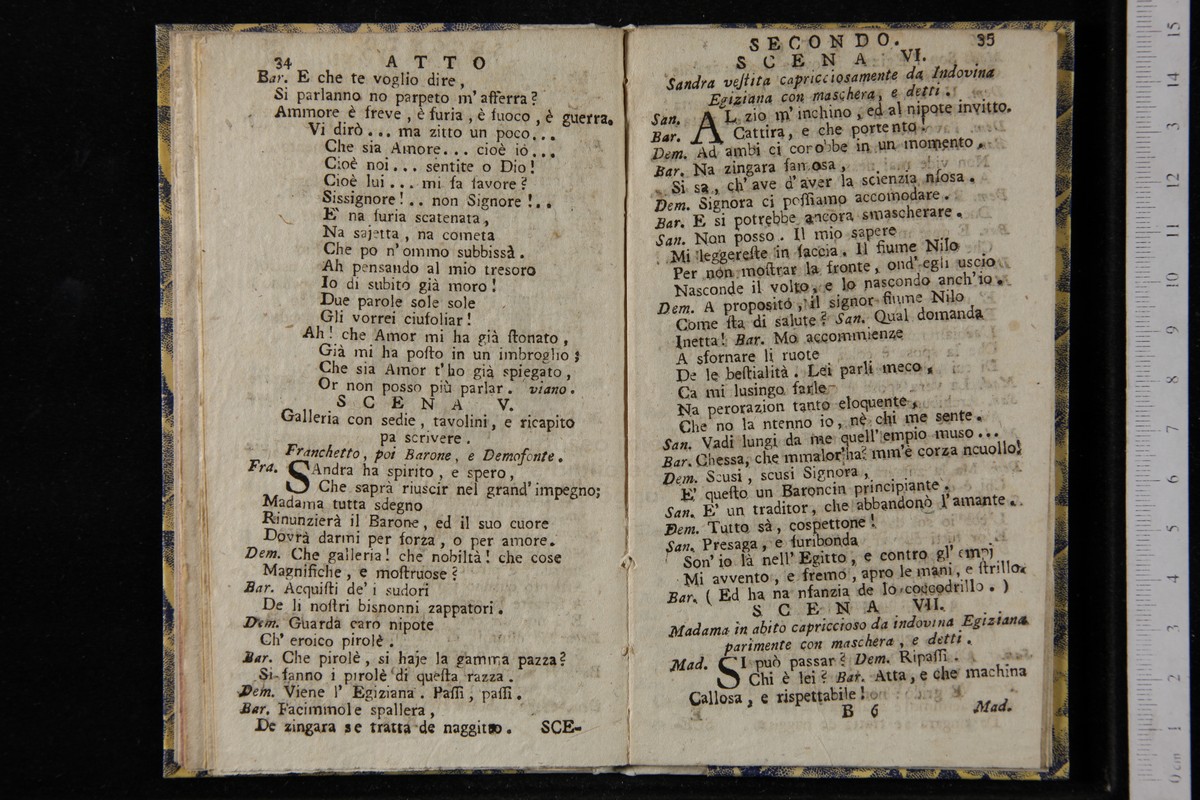 34 ATTO
Bar. E che te voglio dire,
Si parlanno no parpeto m' afferra?
Ammore è freve, è furia, è fuoco, è guerra.
Vi dirò... ma zitto un poco...
Che sia Amore... cioè io...
Cioè noi... sentite o Dio!
Cioè lui... mi fa favore?
Sissignore!.. non Signore!..
E' na furia scatenata,
Na sajetta, na cometa
Che po n' ommo subbissà.
Ah pensando al mio tresoro
Io di subito già moro!
Due parole sole sole
Gli vorrei ciufoliar!
Ah! che Amor mi ha già ſtonato,
Già mi ha poſto in un imbroglio;
Che sia Amor t'ho già spiegato,
Or non posso più parlar. viano.
SCENA V.
Galleria con sedie, tavolini, e ricapito
pa scrivere.
Franchetto, poi Barone, e Demofonte.
Fra. SAndra ha spirito, e spero,
Che saprà riuscir nel grand' impegno;
Madama tutta sdegno
Rinunzierà il Barone, ed il suo cuore
Dovrà darmi per forza, o per amore.
Dem. Che galleria! che nobiltà! che cose
Magnifiche, e moſtruose?
Bar. Acquiſti de' i sudori
De li noſtri bisnonni zappatori.
Dem. Guarda caro nipote
Ch' eroico pirolè.
Bar. Che pirolè, si haje la gamma pazza?
Si fanno i pirolè di queſta razza.
Dem. Viene l' Egiziana. Paſſi, paſſi.
Bar. Facimmole spallera,
De zingara se tratta de naggitto. SCE-
SECONDO. 35
SCENA VI.
Sandra veſtita capricciosamente da Indovina
Egiziana con maschera, e detti.
San. AL zio m' inchino, ed al nipote invitto.
Bar. Cattira, e che portento!
Dem. Ad ambi ci corobbe in un momento.
Bar. Na zingara famosa,
Si sa, ch' ave d' aver la scienzia nfosa.
Dem. Signora ci poſſiamo accomodare.
Bar. E si potrebbe ancora smascherare.
San. Non posso. Il mio sapere
Mi leggereſte in faccia. Il fiume Nilo
Per non moſtrar la fronte, ond' egli uscio
Nasconde il volto, e lo nascondo anch'io.
Dem. A proposito, il signor fiume Nilo
Come ſta di salute? San. Qual domanda
Inetta! Bar. Mo accommienze
A sfornare li ruote
De le beſtialità. Lei parli meco,
Ca mi lusingo farle
Na perorazion tanto eloquente,
Che no la ntenno io, nè chi me sente.
San. Vadi lungi da me quell' empio muso...
Bar. Chessa, che mmalor'ha? mm'è corza ncuollo!
Dem. Scusi, scusi Signora,
E' queſto un Baroncin principiante.
San. E' un traditor, che abbandonò l'amante.
Dem. Tutto sà, cospettone!
San. Presaga, e furibonda
Son' io là nell' Egitto, e contro gl' empj
Mi avvento, e fremo, apro le mani, e ſtrillo.
Bar. ( Ed ha na nfanzia de lo coccodrillo. )
SCENA VII.
Madama in abito capriccioso da indovina Egiziana
parimente con maschera, e detti.
Mad. SI può passar? Dem. Ripaſſi.
Chi è lei? Bar. Atta, e che machina
Callosa, e rispettabile!
B 6 Mad.
15
14
13
12
11
10
9
8
7
6
5
4
3
2
1
0 cm